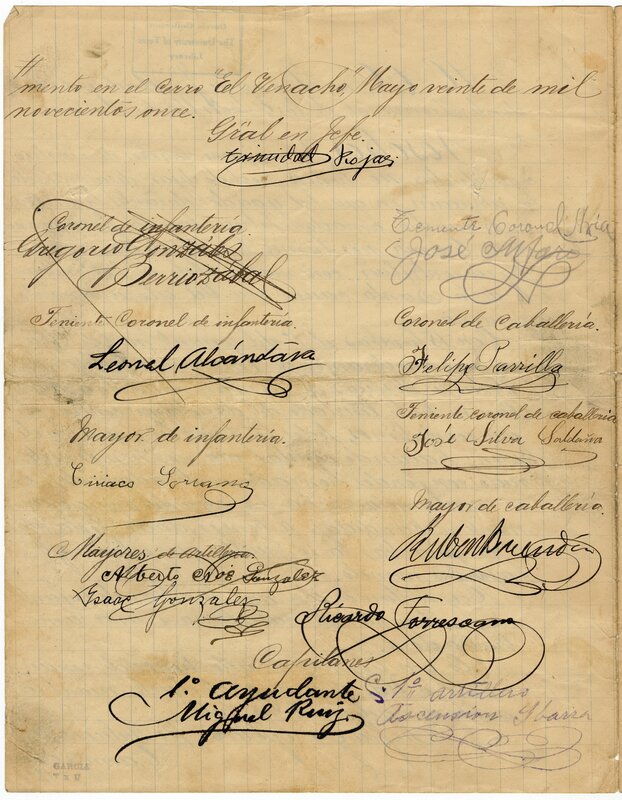 mento en el cerro "El Venacho", Mayo veinte de mil
novecientos once.
Gral en Jefe.
trinidad Rojas
Coronel de infantería.
Gregorio Gonzáles
Berriozabal
Teniente Coronel
José Alfaro
Teniente Coronel de infantería.
Leonel Alcántara
Coronel de Caballería.
Felipe Parrilla
Teniente coronel de caballería
José Silva Saldaña
Mayor de infantería.
Ciriaco Soriano
Mayor de caballería.
Ruben
Mayores de artillería.
Alberto Gonzalez
Isaac Gonzalez
Ricardo Torrescano
Capitanes
1.º Ayudante
Miguel Ruiz.
1º artillero
Ascension Ybarra
GARCIA